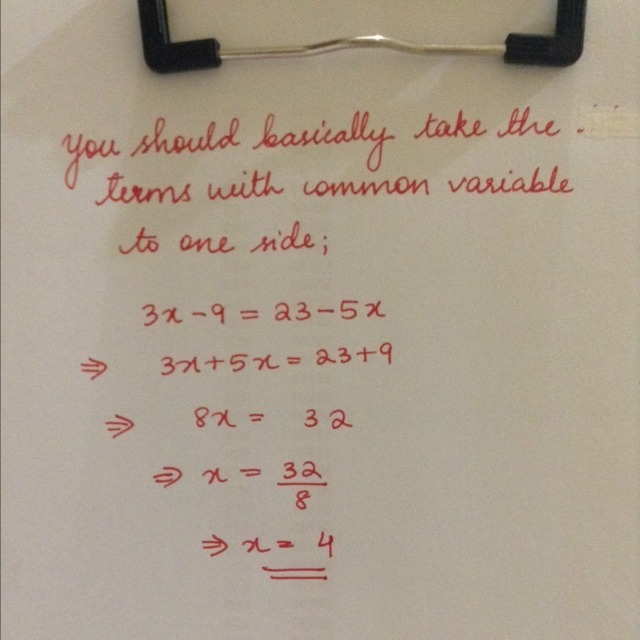 you should basically take the
terms with common variable
to one side;
3x-9 = 23-5x
⇒ 3x+5x = 23+9
⇒ 8x = 32
⇒ x = 32/8
⇒ x = 4